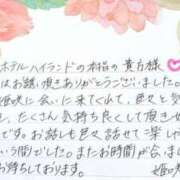 ホテルハイランドの本指の貴方様
はお誘い頂きありがとうございました。
姫咲に会いに来てくれて、色々と気
、たくさん気持ち良くして頂き
です。お話しも色々話せて楽しゅ
う間でした。またお時間が合いまし
お待ちしております。
姫の咲